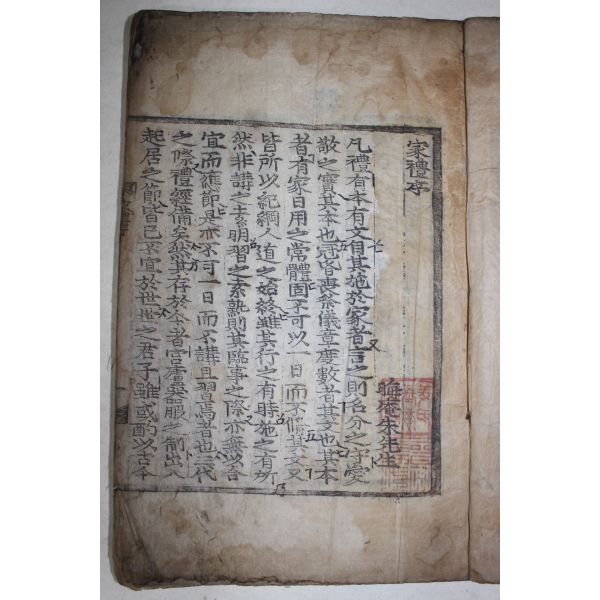 家禮序
晦庵朱先生
凡禮有本有文自其施於家者言之則名分之守愛
敬之實其本也冠昏喪祭儀章度數者其文也其本
者有家日用之常體固不可以一日而不修其文又
皆所以紀綱人道之始終雖其行之有時施之有所
然非講之素明習之素熟則其臨事之際亦無以合
宜而應節是亦不可一日而不講且習焉者也三代
之際禮經備矣然其存於今者宮廬器服之制出入
起居之節皆已不宜於世世之君子雖或酌以古今